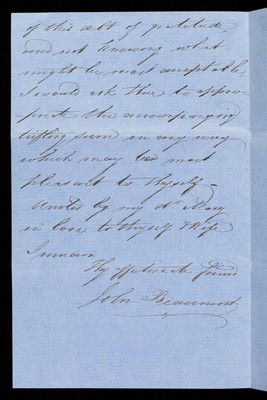 of this debt of gratitude,
and not knowing what
might be most acceptable,
I would ask thee to appro-
priate the accompanying
trifling sum in any way
which may be most
pleasant to thyself
United by my dr Mary
in love to thyself & Wife
I remain
Thy affectionate friend
John Beaumont